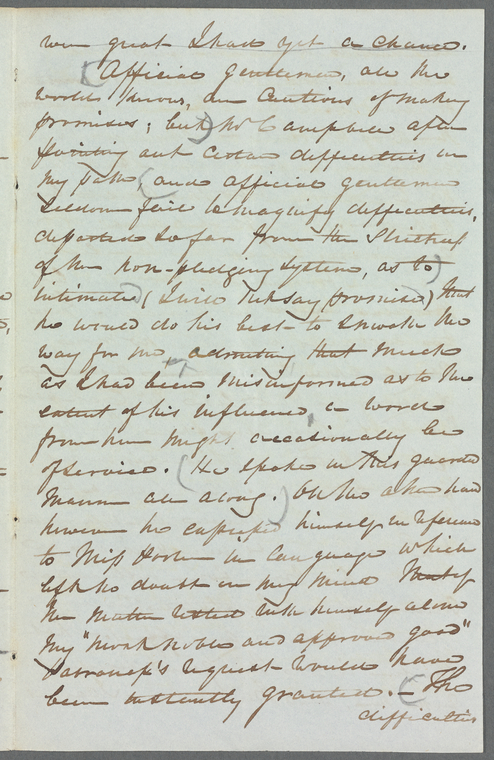 were great I had yet a chance.
(Official gentlemen, all the
world knows, are cautious of making
promises; but) Mr Campbell after
pointing out certain difficulties in
my path, (and official gentlemen
seldom fail to magnify difficulties,
departed so far from the strictness
of the non-pledging system, as to)
intimate (I will not say promise) that
he would do his best to smooth the
way for me, admitting that much
as I had been misinformed as to the
extent of his influence, a word
from him might occasionally be
of service. (He spoke in this guarded
manner all along.) On the other hand
however he expressed himself in reference
to Miss in language which
left no doubt in my mind that if
the matter rested with himself alone
my "most noble and approved good"
Patroness's request would have
been instantly granted. — (The
difficulties